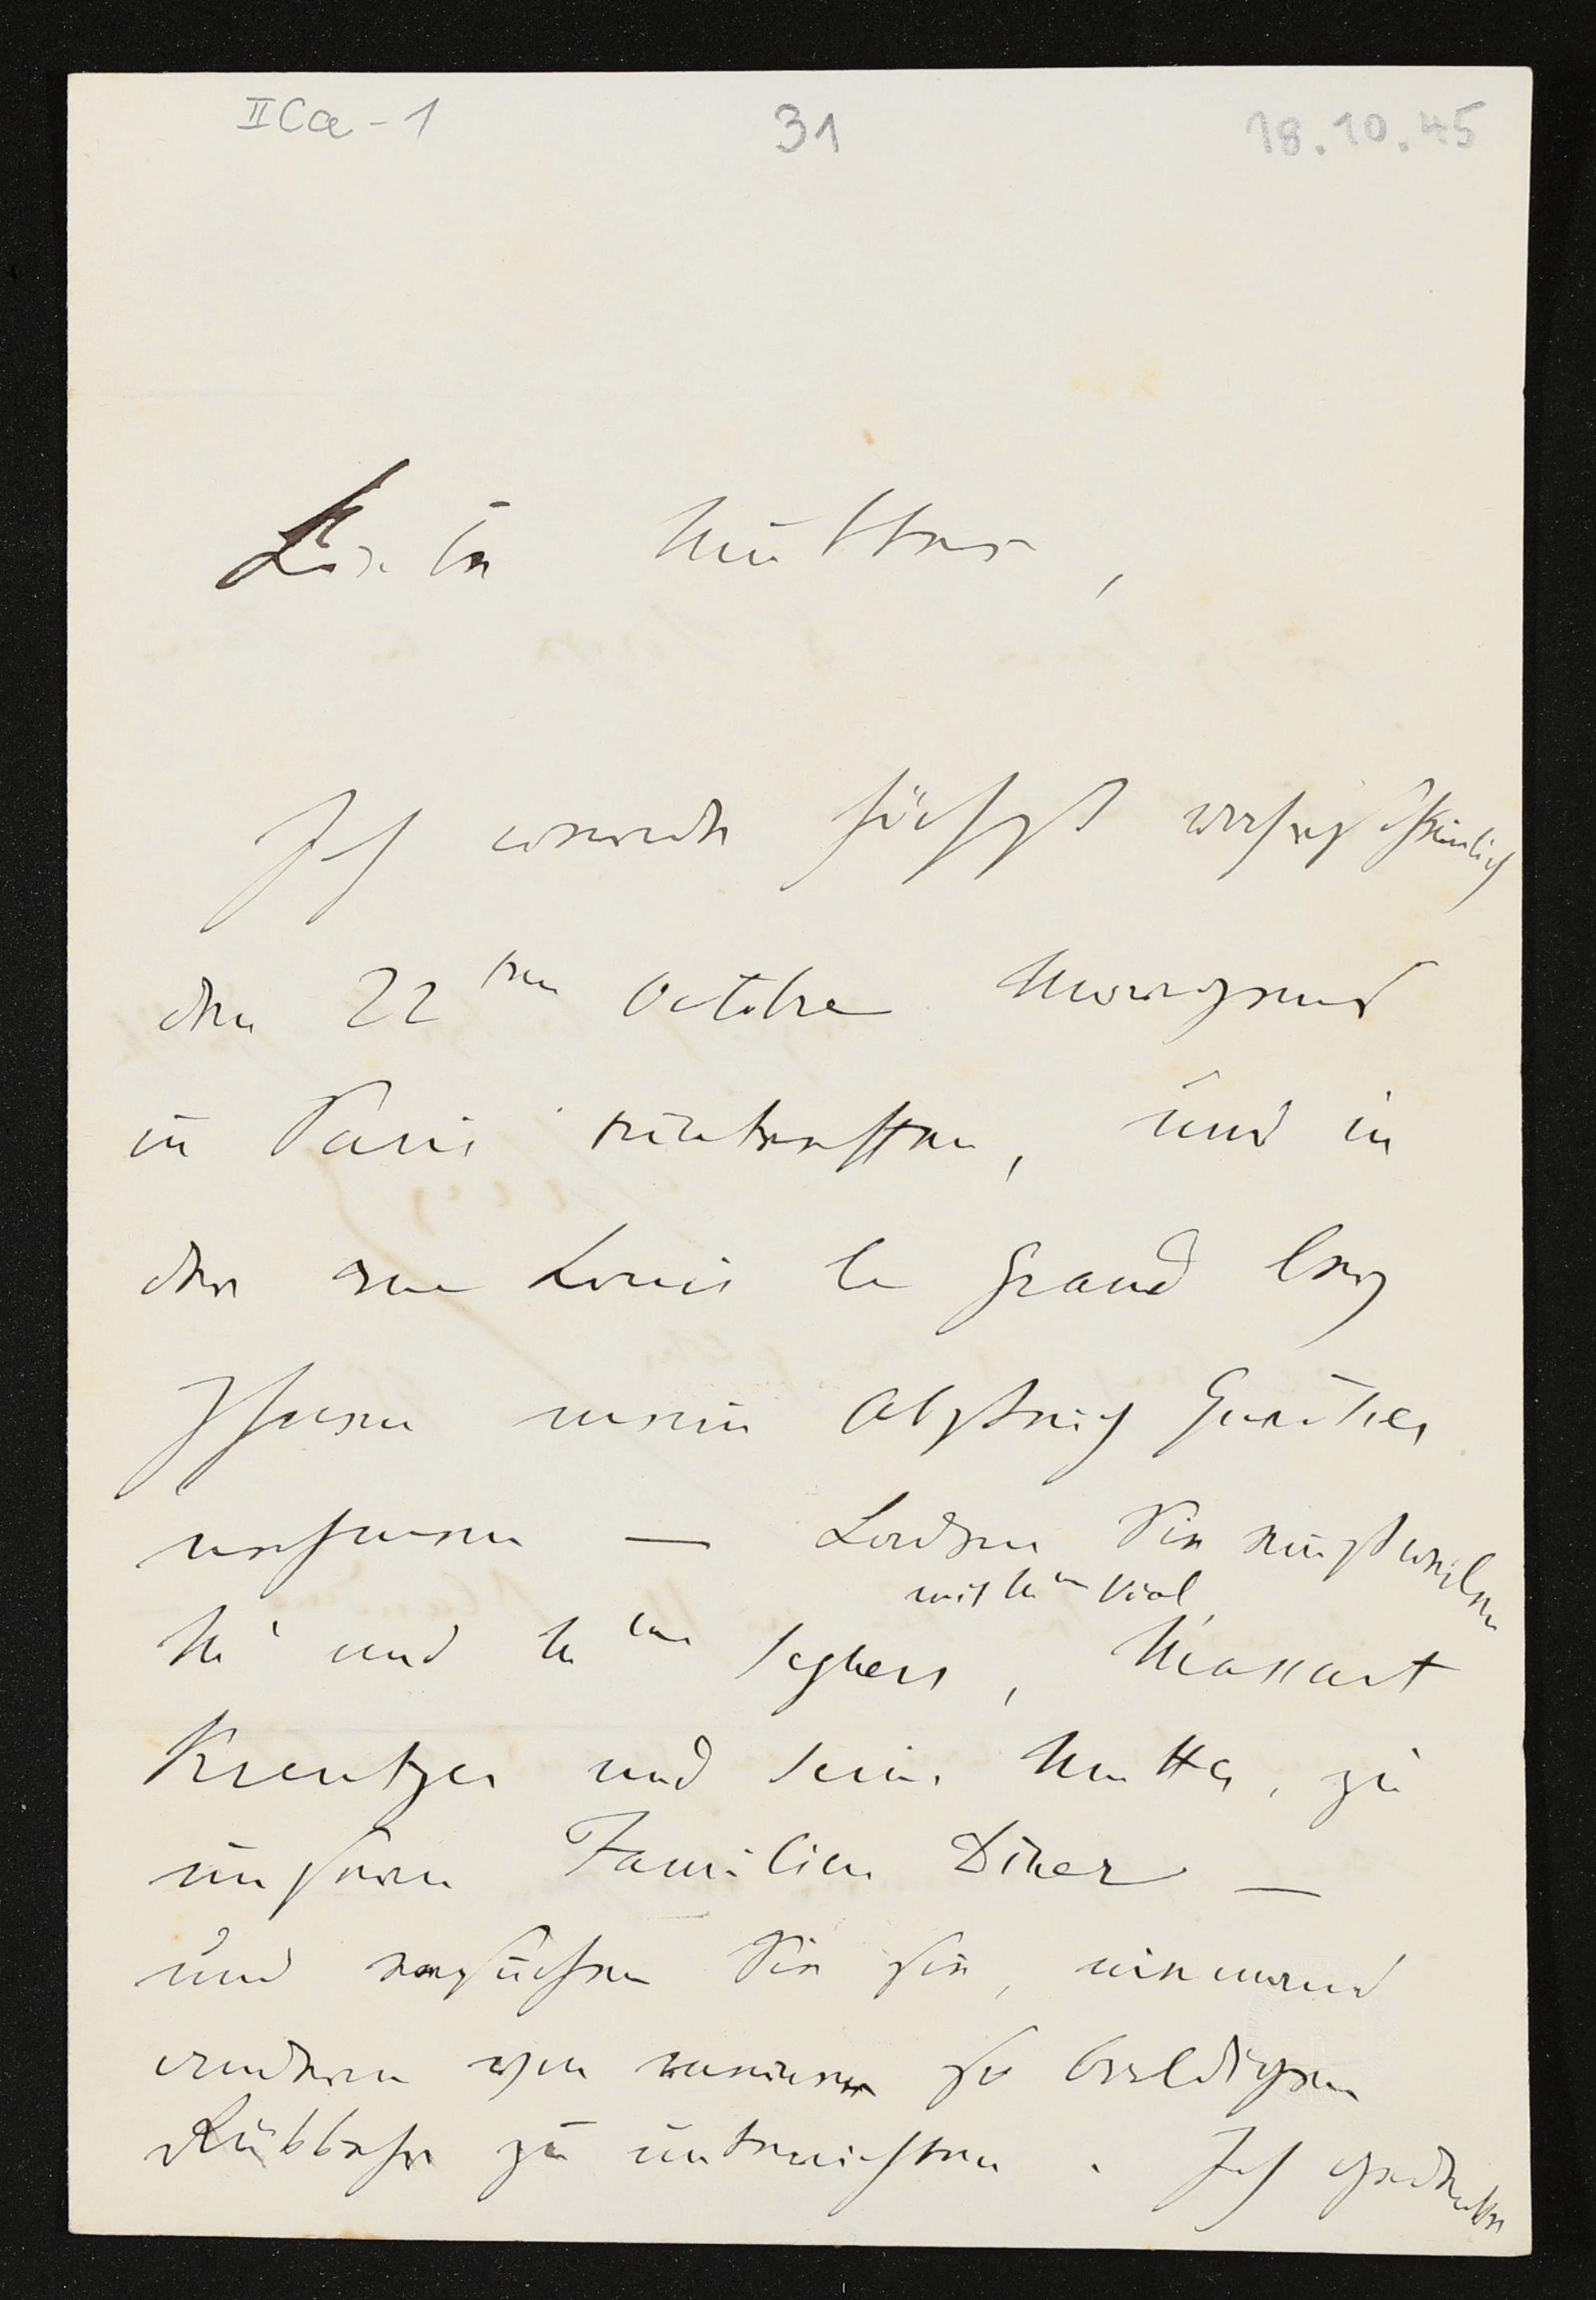 II Ca - 1 31 18.10.45
Liebe Mutter,
Ich werde höchst wahrscheinlich
den 22ten Octobre Morgend
in Paris eintreffen, und in
der rue Louis le Grand bey
Ihnen mein Absteig Quartier
nehmen — Laden Sie einstweilen
mit Me Vial,
Mr und Me Seghers, Massart
Kreutzer und seine Mutter, zu
unserm Familien Diner —
und ersuchen Sie sie, niemand
andern von meiner so baldigen
Rükkehr zu unterrichten. Ich gedenke